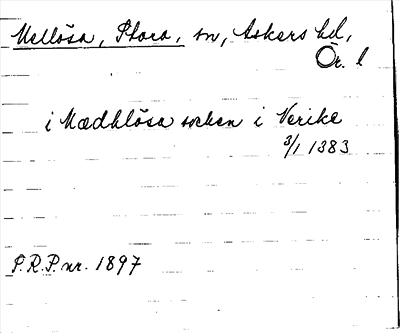 Mellösa, Stora, sn, Askers hd,
Ör. l
i Mædhlösa socken i Nerike
3/1 1383
P.R.P. nr. 1897